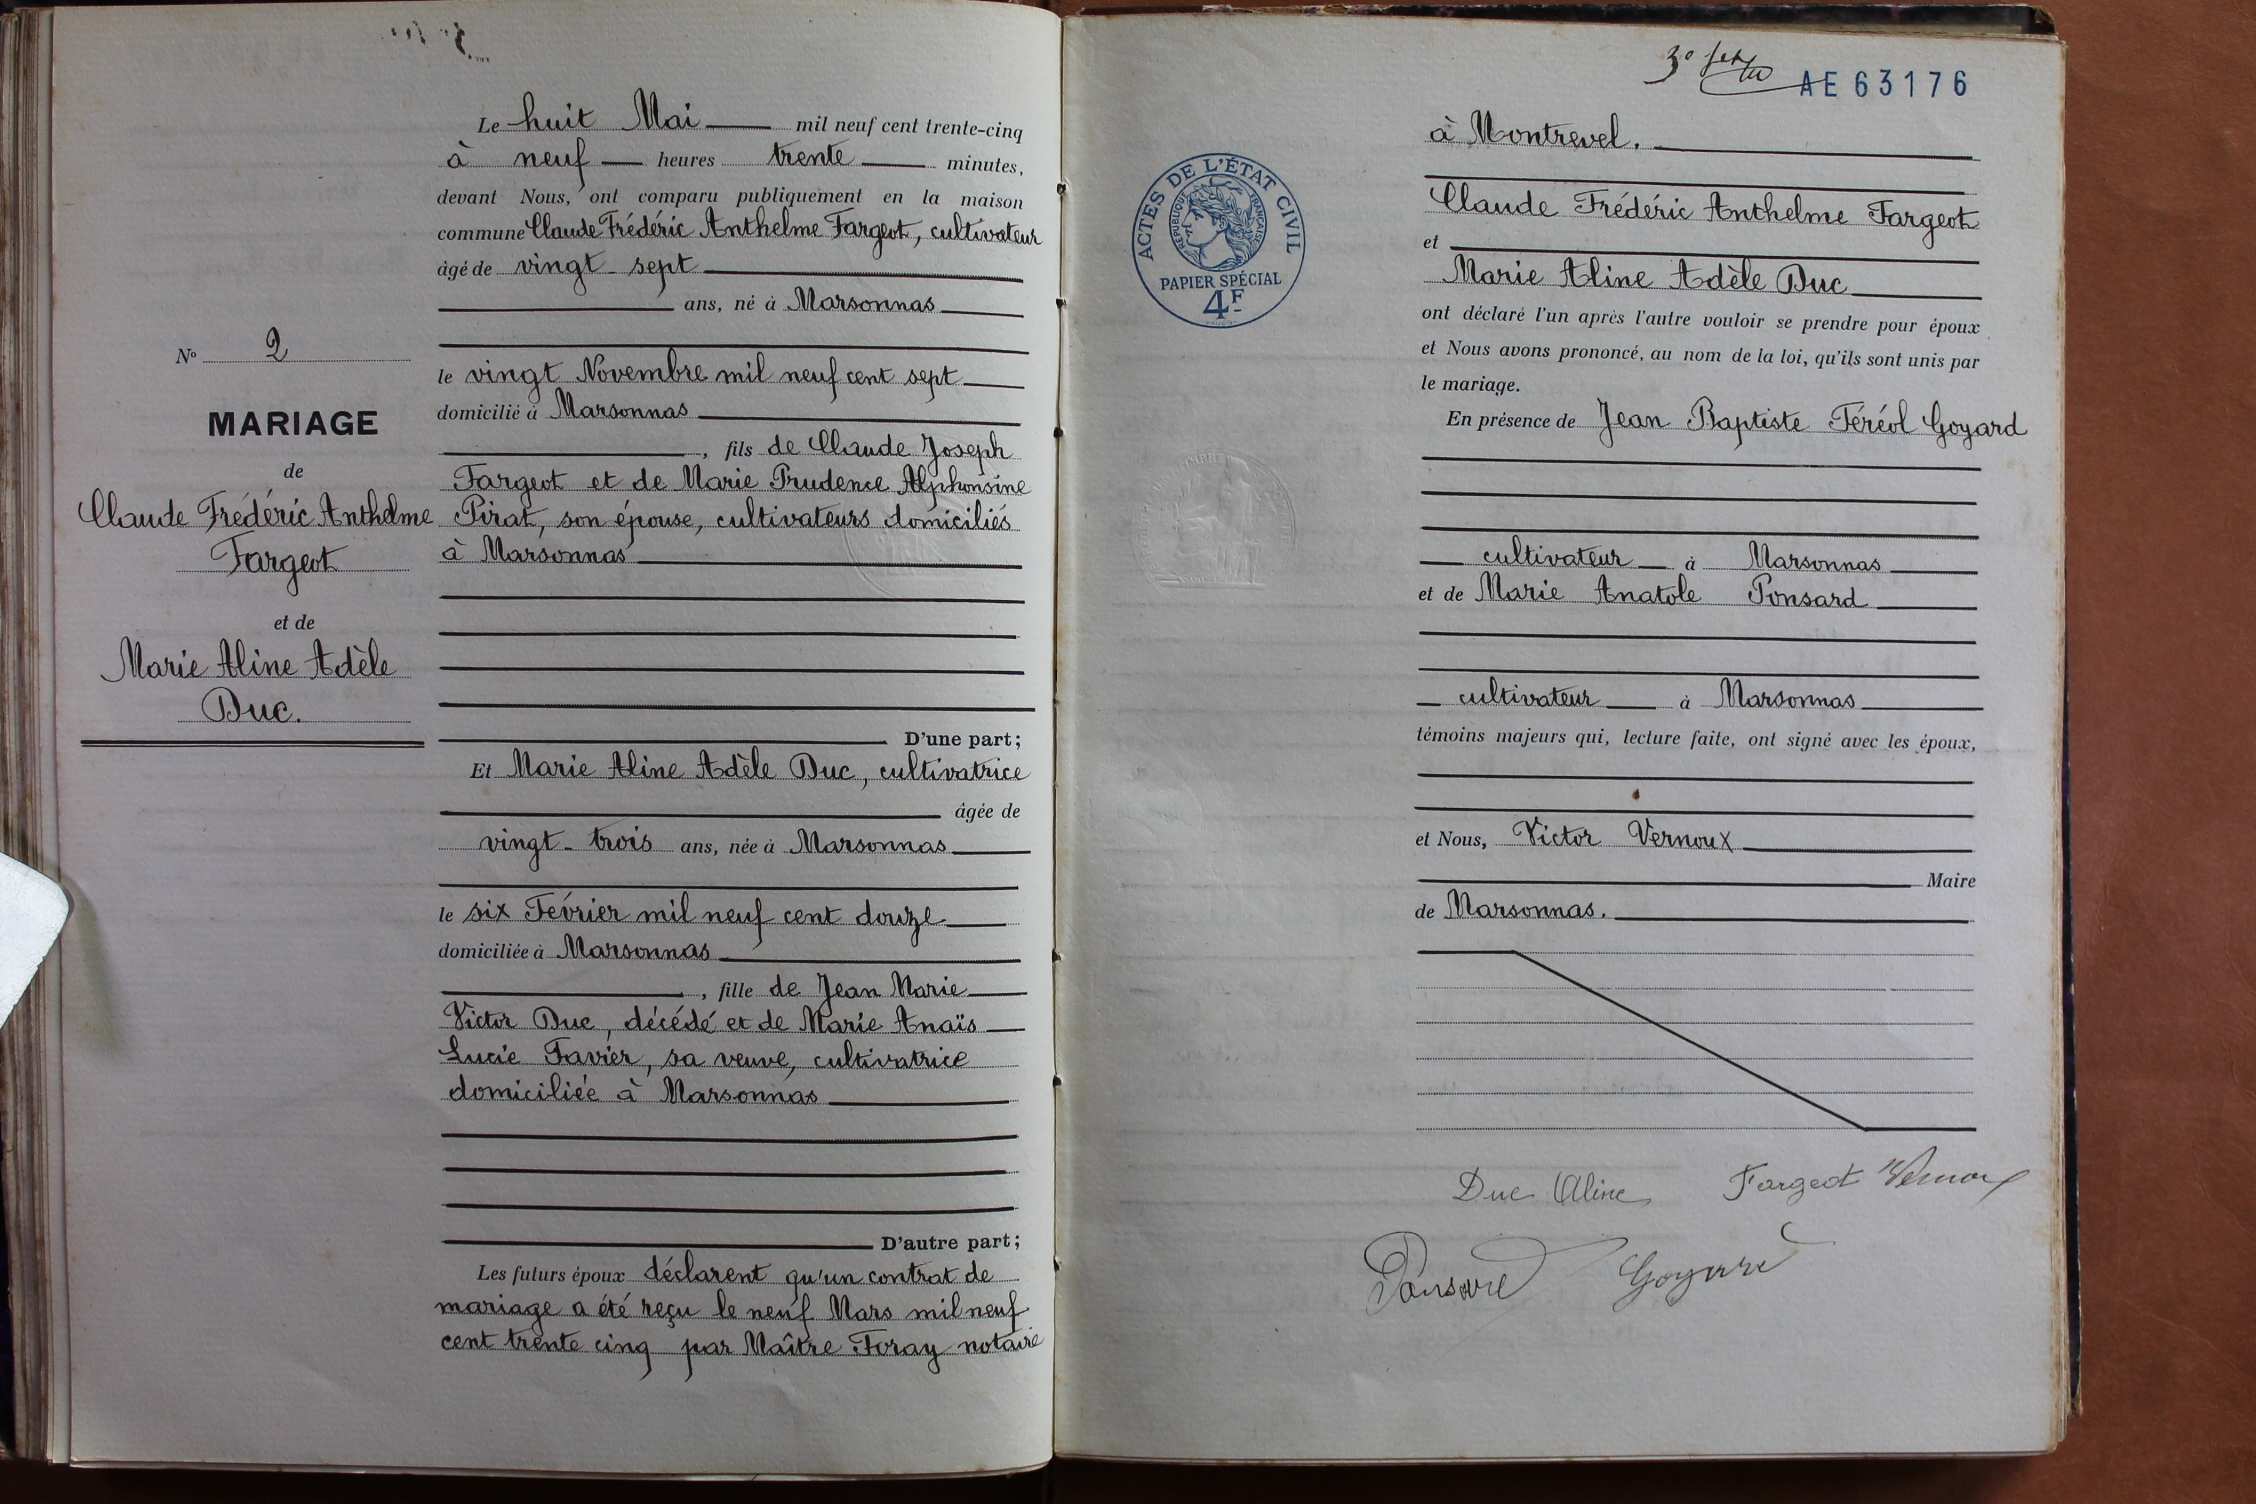 Le huit Mai mil neuf cent trente-cinq
à neuf heures trente minutes,
devant Nous, ont comparu publiquement en la maison
commune Claude Frédéric Anthelme Fargeot, cultivateur
âgé de vingt-sept
ans, né à Marsonnas
le vingt Novembre mil neuf cent sept
domicilié à Marsonnas
, fils de Claude Joseph
Fargeot et de Marie Prudence Alphonsine
Pirat, son épouse, cultivateurs domiciliés
à Marsonnas
D'une part;
Et Marie Aline Adèle Duc, cultivatrice
âgée de
vingt-trois ans, née à Marsonnas
le six Février mil neuf cent douze
domiciliée à Marsonnas
, fille de Jean Marie
Victor Duc, décédé et de Marie Anaïs
Lucie Favier, sa veuve, cultivatrice
domiciliée à Marsonnas
D'autre part;
Les futurs époux déclarent qu'un contrat de
mariage a été reçu le neuf Mars mil neuf
cent trente cinq par Maître Foray notaire
No 2
MARIAGE
de
Claude Frédéric Anthelme
Fargeot
et de
Marie Aline Adèle
Duc.
3e
AE 63176
ACTES DE L'ÉTAT CIVIL
RÉPUBLIQUE FRANÇAISE
PAPIER SPÉCIAL
4F
à Montrevel.
Claude Frédéric Anthelme Fargeot
et
Marie Aline Adèle Duc
ont déclaré l'un après l'autre vouloir se prendre pour époux
et Nous avons prononcé, au nom de la loi, qu'ils sont unis par
le mariage.
En présence de Jean Baptiste Féréol Goyard
cultivateur à Marsonnas
et de Marie Anatole Ponsard
cultivateur à Marsonnas
témoins majeurs qui, lecture faite, ont signé avec les époux,
et Nous, Victor Vernoux
Maire
de Marsonnas.
Duc Aline Fargeot Vernoux
Ponsard Goyard